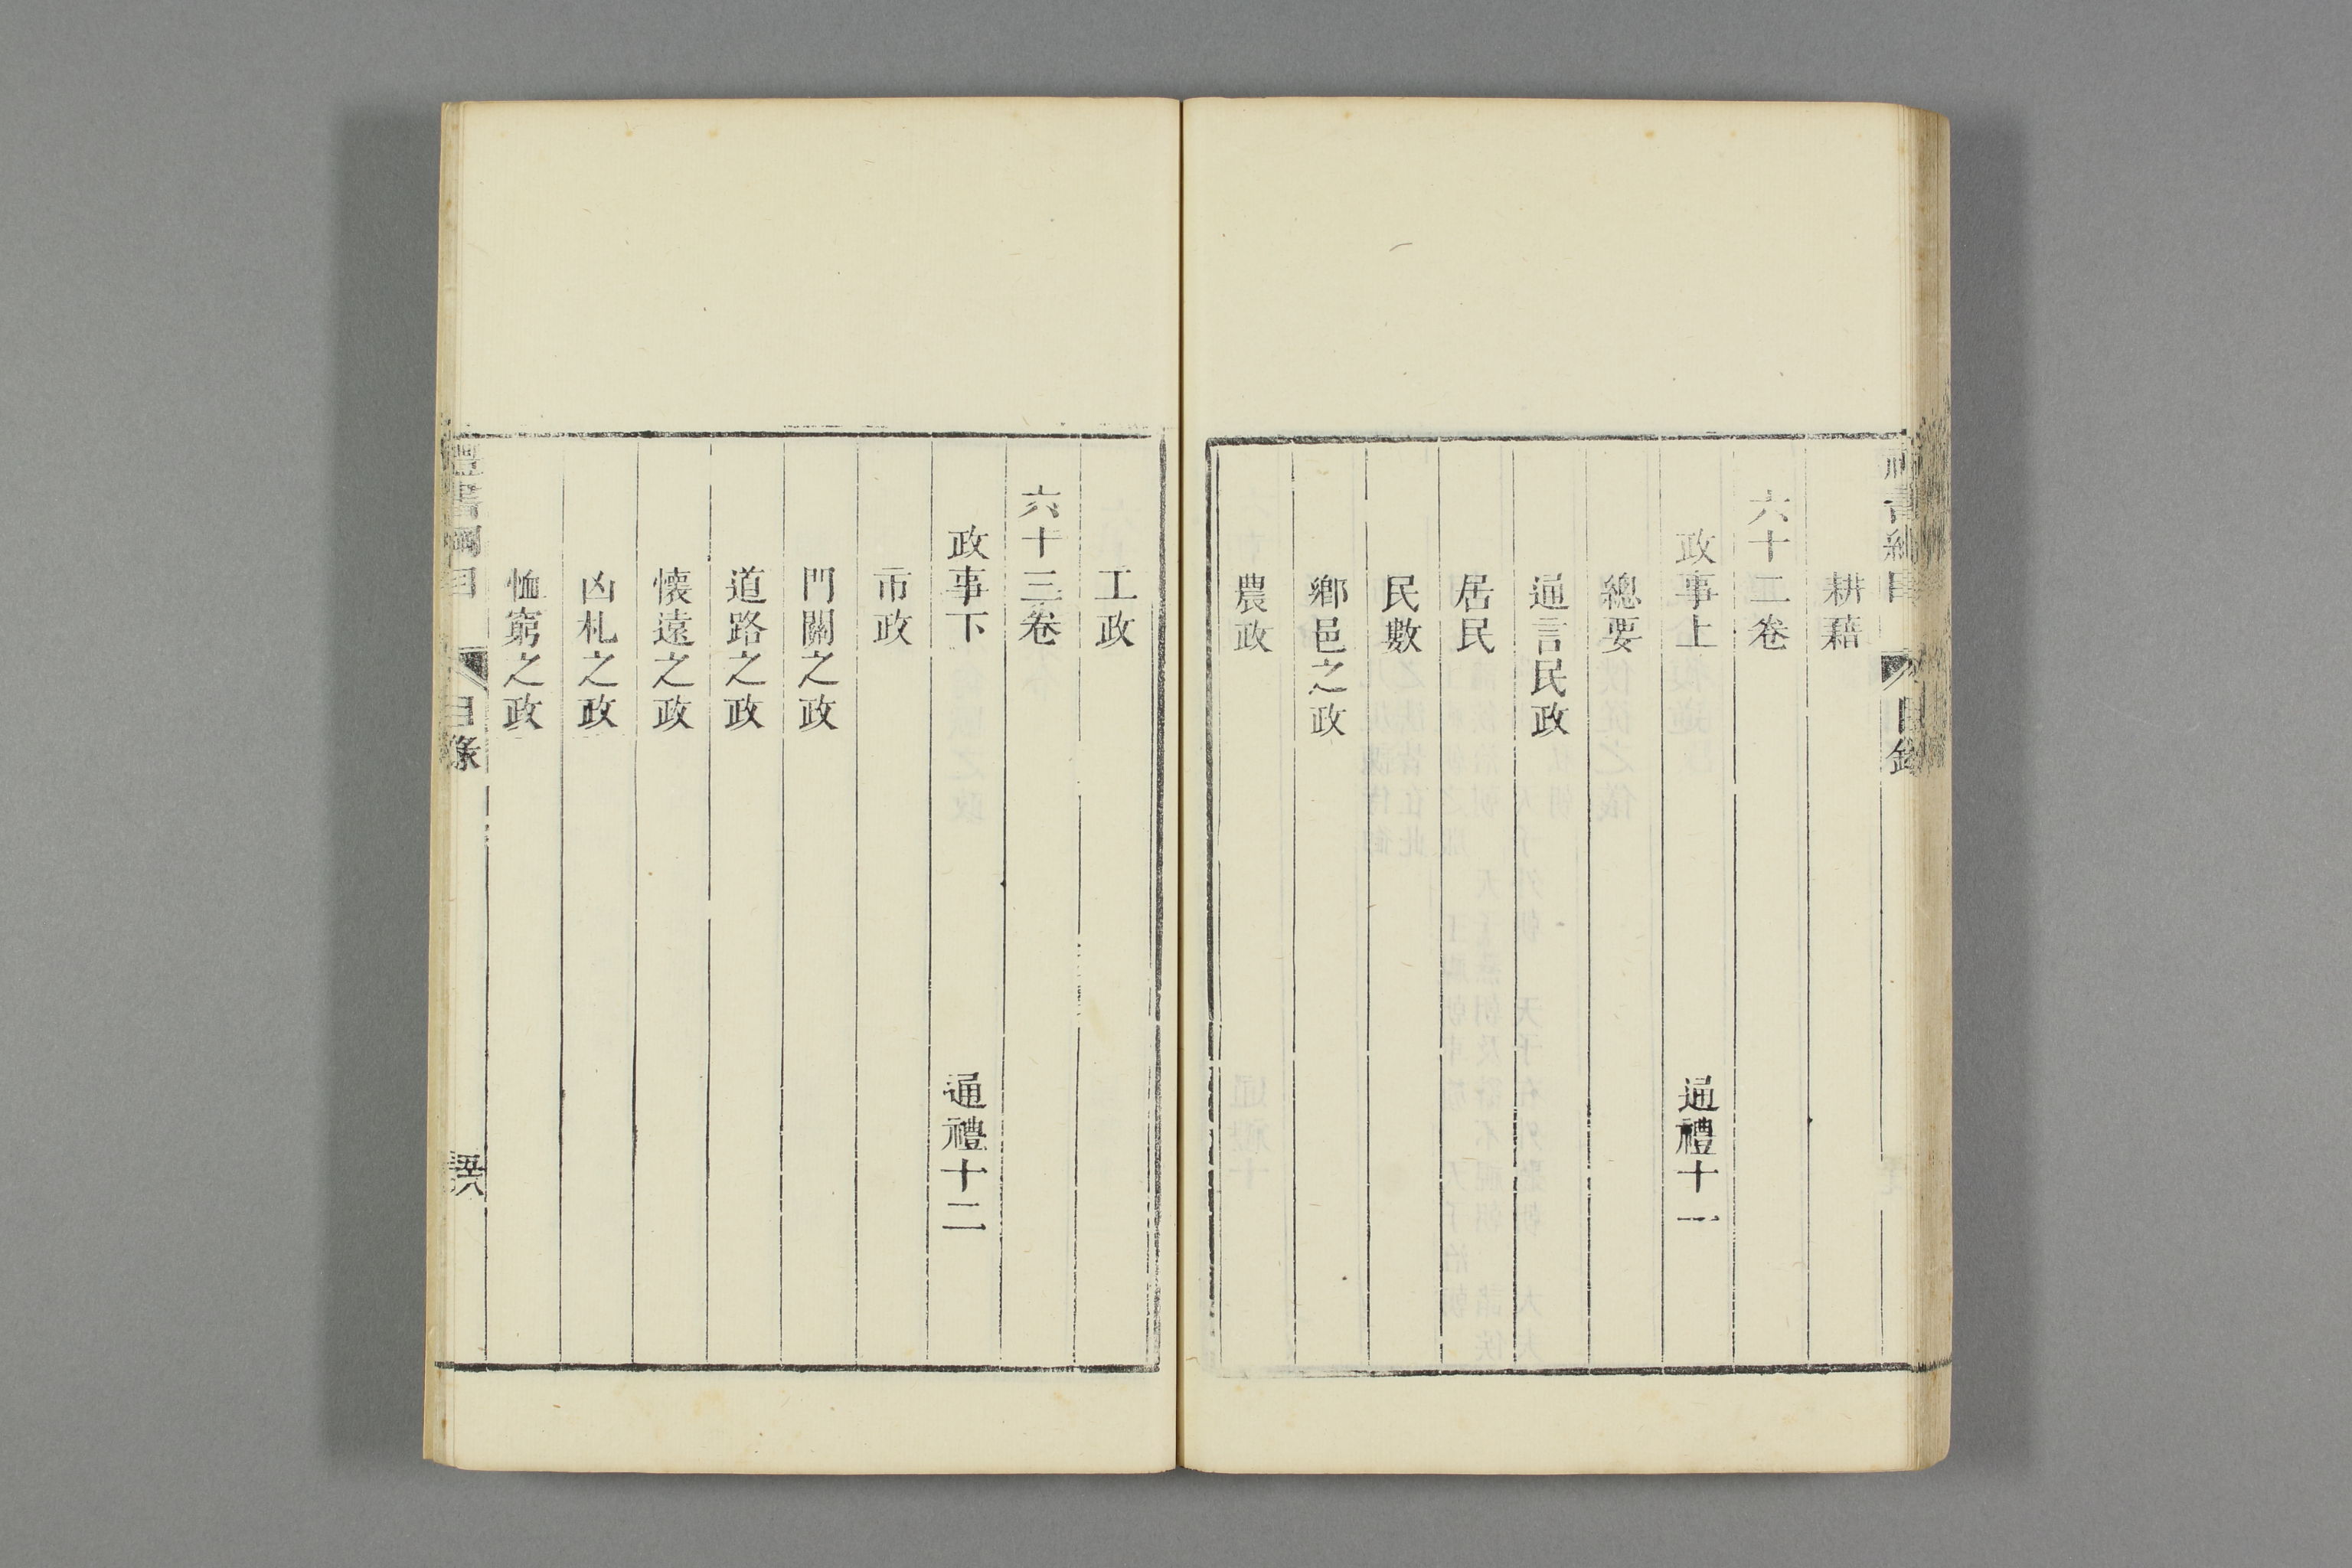 禮書綱目
目錄
耕藉
六十二卷
政事上 通禮十一
總要
通言民政
居民
民數
鄉邑之政
農政
工政
六十三卷
政事下 通禮十二
市政
門關之政
道路之政
懷遠之政
凶札之政
恤窮之政
禮書綱目
目錄